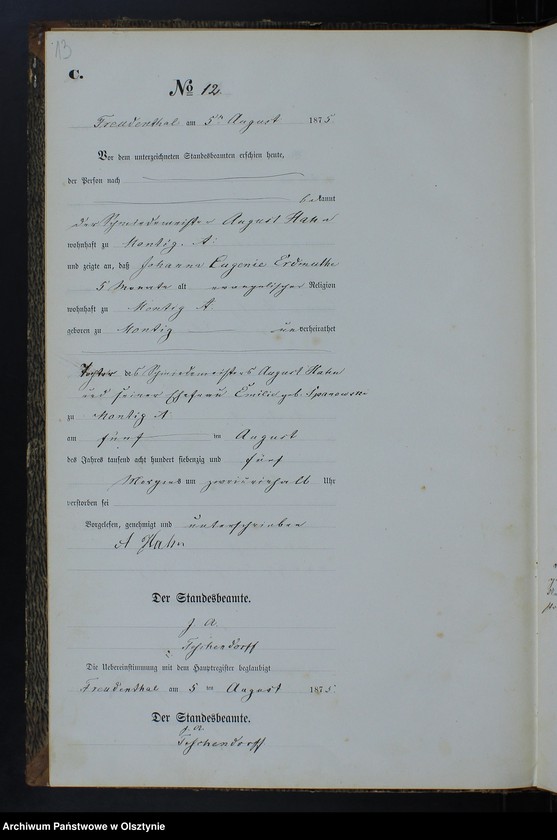 13
C.
No 12
Freudenthal am 5ten August 1875
Vor dem unterzeichneten Standesbeamten erschien heute,
der Person nach
bekannt
der Schmiedemeister August Hahn
wohnhaft zu Montig. A.
und zeigte an, daß Johanna Eugenie Erdmuthe
5 Monate alt evangelischer Religion
wohnhaft zu Montig A.
geboren zu Montig unverheirathet
Tochter des Schmiedemeisters August Hahn
und seiner Ehefrau Emilie geb.
zu Montig A
am fünf ten August
des Jahres tausend acht hundert siebenzig und fünf
Morgens um zweieinhalb Uhr
verstorben sei
Vorgelesen, genehmigt und unterschrieben
A Hahn
Der Standesbeamte.
J. A.
Teschendorff
Die Uebereinstimmung mit dem Hauptregister beglaubigt
Freudenthal am 5 ten August 1875
Der Standesbeamte.
J. A.
Teschendorff
Archiwum Państwowe w Olsztynie